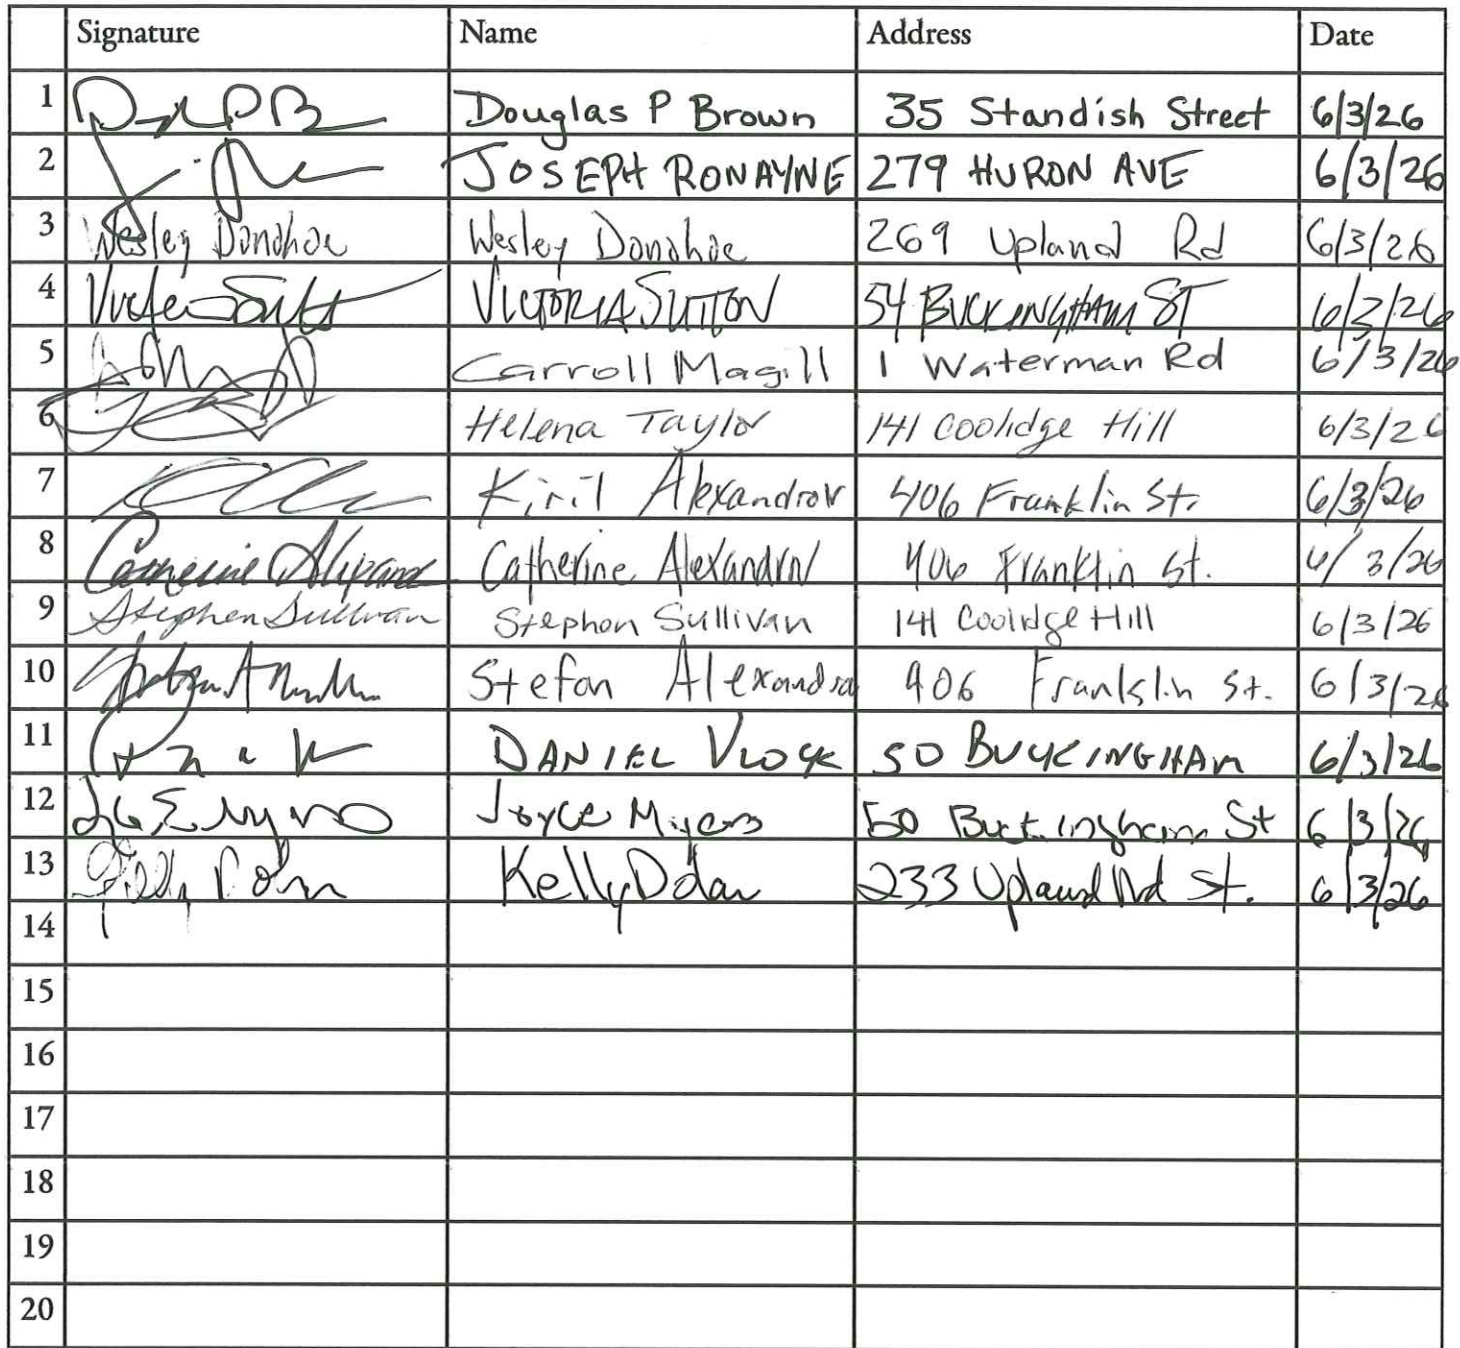 Signature Name Address Date
1 Douglas P Brown 35 Standish Street 6/3/26
2 JOSEPH RONAYNE 279 HURON AVE 6/3/26
3 Wesley Donohoe Wesley Donohoe 269 Upland Rd 6/3/26
4 VICTORIA SUTTON 54 BUCKINGHAM ST 6/3/26
5 Carroll Magill 1 Waterman Rd 6/3/26
6 Helena Taylor 141 Coolidge Hill 6/3/26
7 Kiril Alexandrov 406 Franklin St. 6/3/26
8 Catherine Alexandrov 406 Franklin St. 6/3/26
9 Stephen Sullivan Stephen Sullivan 141 Coolidge Hill 6/3/26
10 Stefan 406 Franklin St. 6/3/26
11 DANIEL VLOCK 50 BUCKINGHAM 6/3/26
12 Joyce Myers 50 Buckingham St 6/3/26
13 Kelly Dolan 233 Upland St. 6/3/26
14
15
16
17
18
19
20